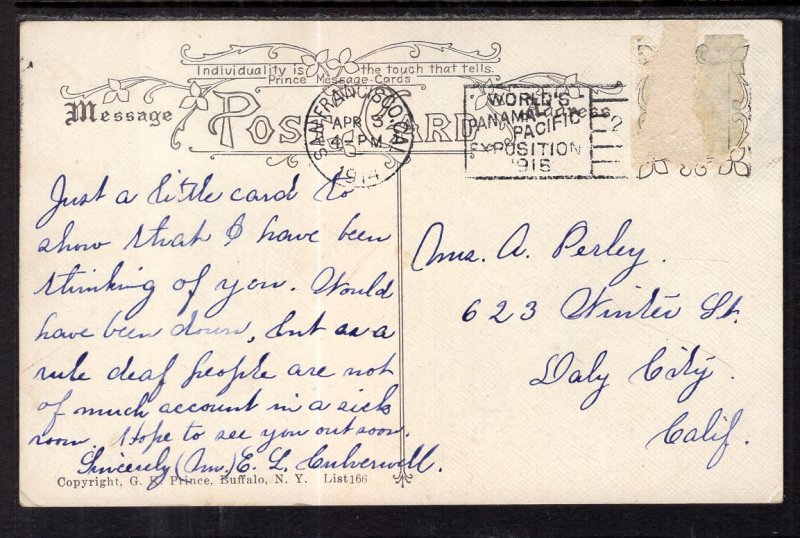 Individuality is the touch that tells.
Prince Message-Cards
Message
POST CARD
Address
SAN FRANCISCO, CAL.
APR 3
4-PM
1914
WORLD'S
PANAMA
PACIFIC
EXPOSITION
1915
2
Just a little card to
show that I have been
thinking of you. Would
have been down, but as a
rule deaf people are not
of much account in a sick
room. Hope to see you out soon.
Sincerely (Mrs.) E. L. Culverwell.
Mrs. A. Perley.
623 Winter St.
Daly City.
Calif.
Copyright, G. K. Prince, Buffalo, N. Y. List 166